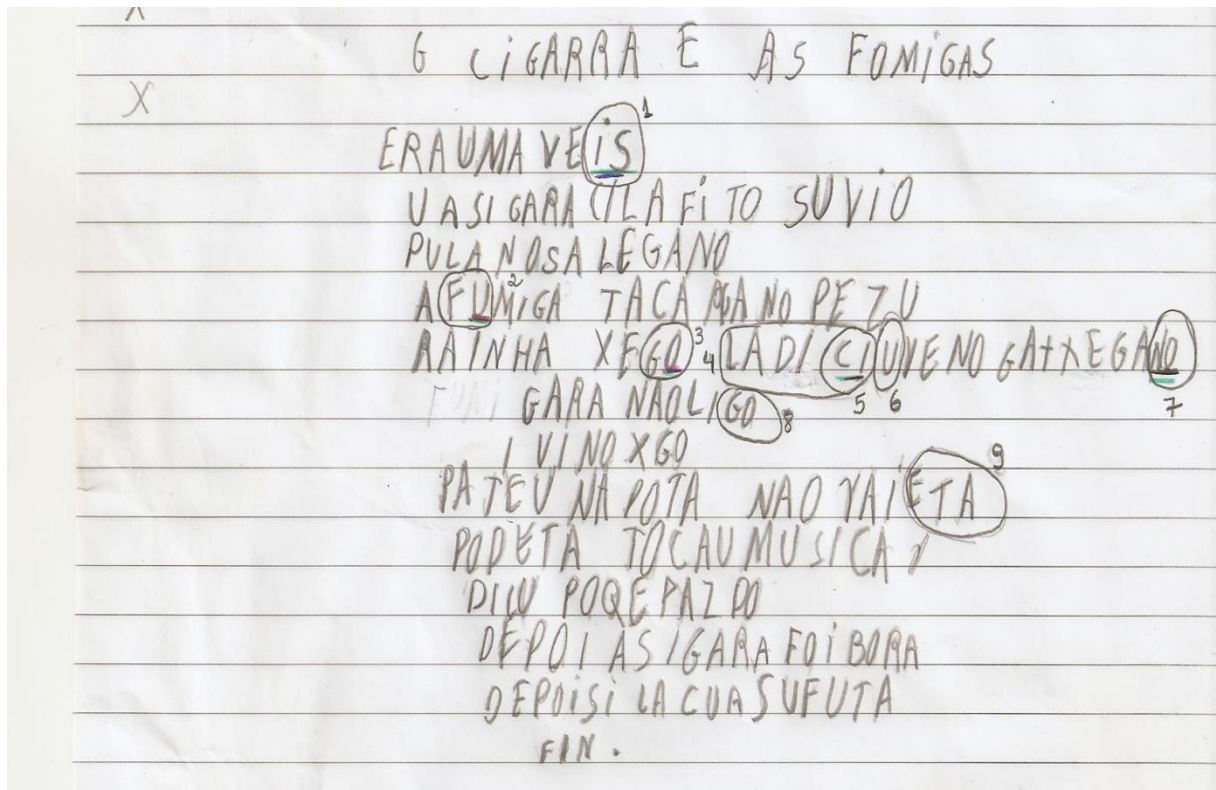 G CIGARRA E AS FOMIGAS
X
1
ERAUMA VEIS
UASIGARA CILAFITO SUVIO
PULANOSALEGANO
2
AFUMIGA TACA NO PEZU
RAINHA XEGO 3 4 LADICIUVENOGATXEGANO
5 6 7
GARA NÃOLIGO 8
I VINO XGO
9
PATEU NA POTA NAO VAIETA
PODETA TOCAUMUSICA
POQEPAZDO
DEPOI ASIGARA FOIBORA
DEPOISI LACUASUFUTA
FIN.